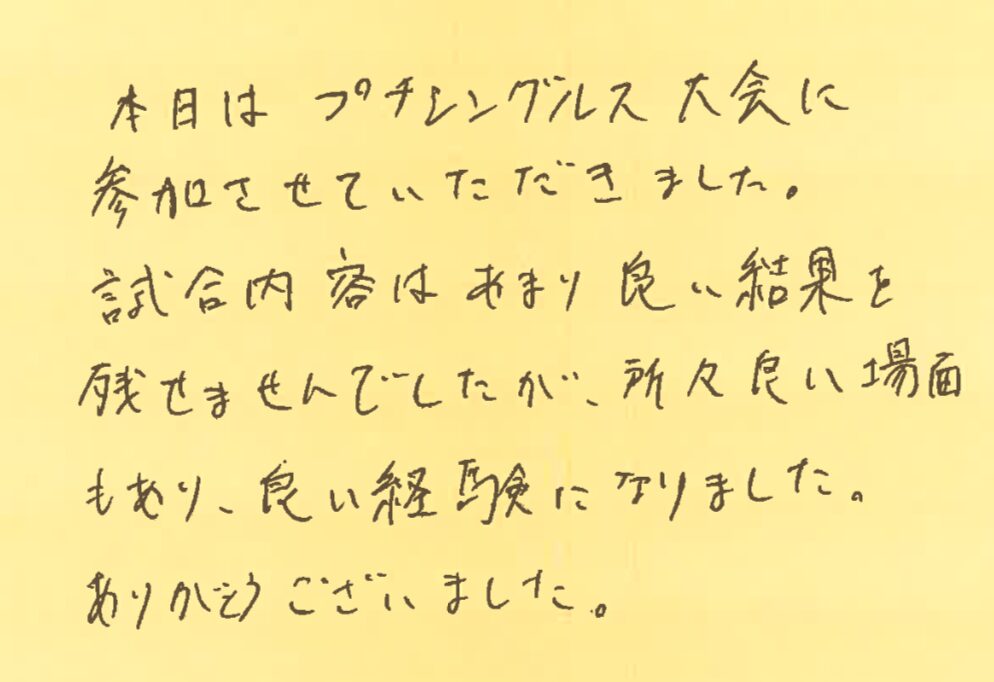 本日は プチシングルス 大会に
参加させていただきました。
試合内容はあまり良い結果を
残せませんでしたが、所々良い場面
もあり、良い経験になりました。
ありがとうございました。